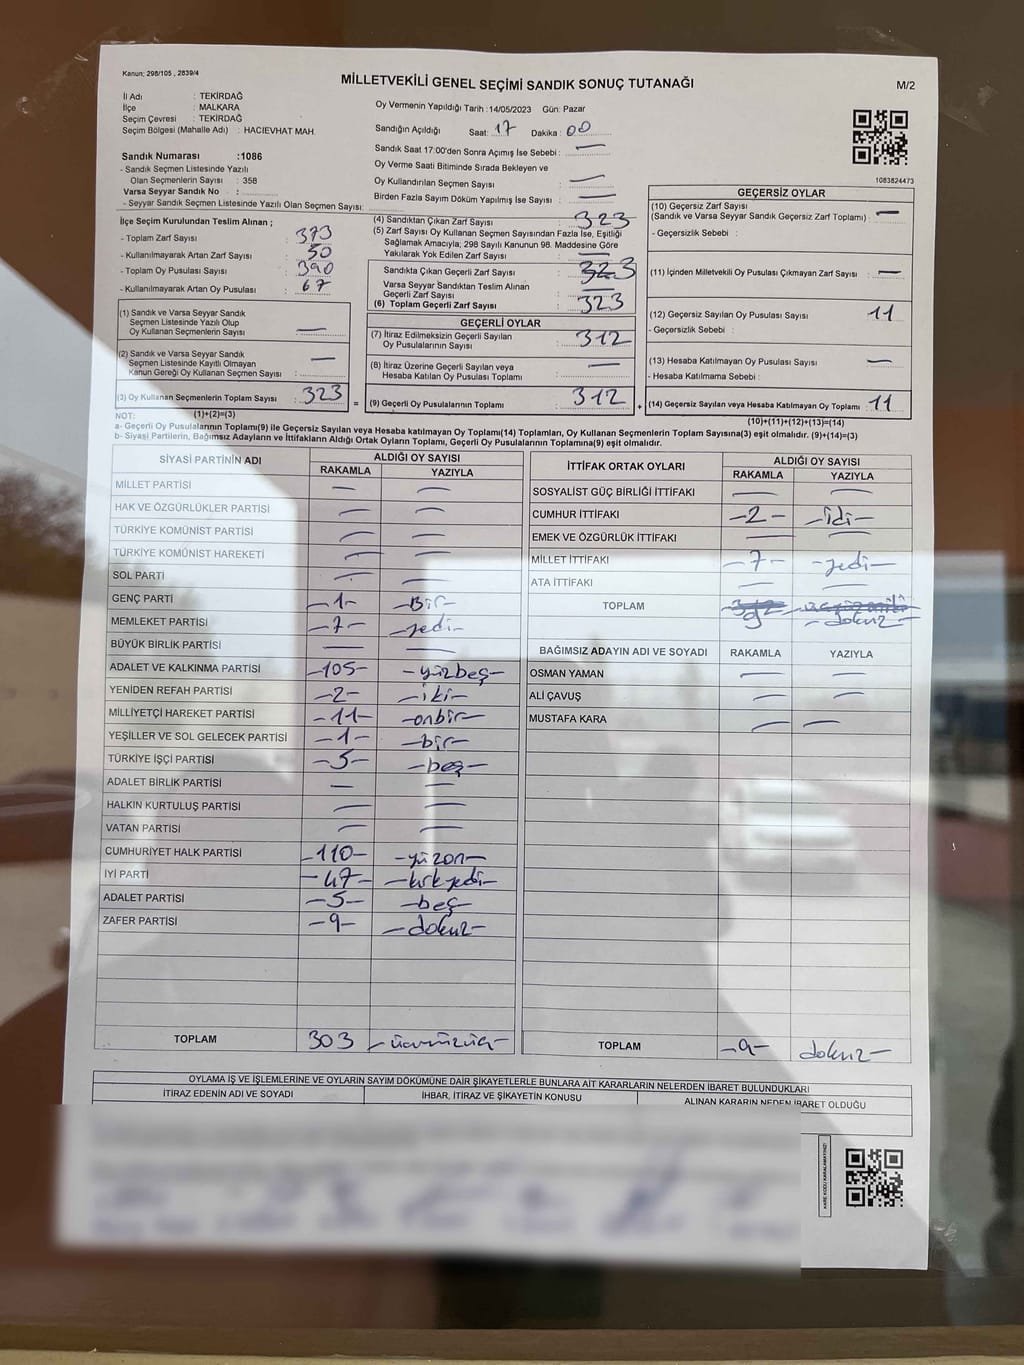 Kanun: 298/105 , 2839/4
MİLLETVEKİLİ GENEL SEÇİMİ SANDIK SONUÇ TUTANAĞI
M/2
İl Adı : TEKİRDAĞ
İlçe : MALKARA
Seçim Çevresi : TEKİRDAĞ
Seçim Bölgesi (Mahalle Adı) : HACIEVHAT MAH.
Oy Vermenin Yapıldığı Tarih : 14/05/2023 Gün: Pazar
Sandığın Açıldığı Saat: 17 Dakika : 00
Sandık Saat 17:00'den Sonra Açımış İse Sebebi : —
Oy Verme Saati Bitiminde Sırada Bekleyen ve
Oy Kullandırılan Seçmen Sayısı : —
Birden Fazla Sayım Döküm Yapılmış İse Sayısı : —
1083824473
Sandık Numarası :1086
- Sandık Seçmen Listesinde Yazılı
Olan Seçmenlerin Sayısı : 358
Varsa Seyyar Sandık No :
- Seyyar Sandık Seçmen Listesinde Yazılı Olan Seçmen Sayısı:
İlçe Seçim Kurulundan Teslim Alınan ;
- Toplam Zarf Sayısı : 373
- Kullanılmayarak Artan Zarf Sayısı : 50
- Toplam Oy Pusulası Sayısı : 390
- Kullanılmayarak Artan Oy Pusulası : 67
(1) Sandık ve Varsa Seyyar Sandık
Seçmen Listesinde Yazılı Olup
Oy Kullanan Seçmenlerin Sayısı : —
(2) Sandık ve Varsa Seyyar Sandık
Seçmen Listesinde Kayıtlı Olmayan
Kanun Gereği Oy Kullanan Seçmen Sayısı : —
(3) Oy Kullanan Seçmenlerin Toplam Sayısı : 323
(1)+(2)=(3)
(4) Sandıktan Çıkan Zarf Sayısı : 323
(5) Zarf Sayısı Oy Kullanan Seçmen Sayısından Fazla İse, Eşitliği
Sağlamak Amacıyla; 298 Sayılı Kanunun 98. Maddesine Göre
Yakılarak Yok Edilen Zarf Sayısı : —
Sandıkta Çıkan Geçerli Zarf Sayısı : 323
Varsa Seyyar Sandıktan Teslim Alınan
Geçerli Zarf Sayısı : —
(6) Toplam Geçerli Zarf Sayısı : 323
GEÇERLİ OYLAR
(7) İtiraz Edilmeksizin Geçerli Sayılan
Oy Pusulalarının Sayısı : 312
(8) İtiraz Üzerine Geçerli Sayılan veya
Hesaba Katılan Oy Pusulası Toplamı : —
= (9) Geçerli Oy Pusulalarının Toplamı : 312 +
GEÇERSİZ OYLAR
(10) Geçersiz Zarf Sayısı
(Sandık ve Varsa Seyyar Sandık Geçersiz Zarf Toplamı) : —
- Geçersizlik Sebebi :
(11) İçinden Milletvekili Oy Pusulası Çıkmayan Zarf Sayısı : —
(12) Geçersiz Sayılan Oy Pusulası Sayısı : 11
- Geçersizlik Sebebi :
(13) Hesaba Katılmayan Oy Pusulası Sayısı : —
- Hesaba Katılmama Sebebi :
(14) Geçersiz Sayılan veya Hesaba Katılmayan Oy Toplamı : 11
(10)+(11)+(12)+(13)=(14)
NOT:
a- Geçerli Oy Pusulalarının Toplamı(9) ile Geçersiz Sayılan veya Hesaba katılmayan Oy Toplamı(14) Toplamları, Oy Kullanan Seçmenlerin Toplam Sayısına(3) eşit olmalıdır. (9)+(14)=(3)
b- Siyasi Partilerin, Bağımsız Adayların ve İttifakların Aldığı Ortak Oyların Toplamı, Geçerli Oy Pusulalarının Toplamına(9) eşit olmalıdır.
SİYASİ PARTİNİN ADI ALDIĞI OY SAYISI
RAKAMLA YAZIYLA
MİLLET PARTİSİ — —
HAK VE ÖZGÜRLÜKLER PARTİSİ — —
TÜRKİYE KOMÜNİST PARTİSİ — —
TÜRKİYE KOMÜNİST HAREKETİ — —
SOL PARTİ — —
GENÇ PARTİ -1- -Bir-
MEMLEKET PARTİSİ -7- -yedi-
BÜYÜK BİRLİK PARTİSİ — —
ADALET VE KALKINMA PARTİSİ -105- -yüzbeş-
YENİDEN REFAH PARTİSİ -2- -iki-
MİLLİYETÇİ HAREKET PARTİSİ -11- -onbir-
YEŞİLLER VE SOL GELECEK PARTİSİ -1- -bir-
TÜRKİYE İŞÇİ PARTİSİ -5- -beş-
ADALET BİRLİK PARTİSİ — —
HALKIN KURTULUŞ PARTİSİ — —
VATAN PARTİSİ — —
CUMHURİYET HALK PARTİSİ -110- -yüzon-
İYİ PARTİ -47- -kırkyedi-
ADALET PARTİSİ -5- -beş-
ZAFER PARTİSİ -9- -dokuz-
TOPLAM 303
İTTİFAK ORTAK OYLARI ALDIĞI OY SAYISI
RAKAMLA YAZIYLA
SOSYALİST GÜÇ BİRLİĞİ İTTİFAKI — —
CUMHUR İTTİFAKI -2- -iki-
EMEK VE ÖZGÜRLÜK İTTİFAKI — —
MİLLET İTTİFAKI -7- -yedi-
ATA İTTİFAKI — —
TOPLAM 312 9 -dokuz-
BAĞIMSIZ ADAYIN ADI VE SOYADI RAKAMLA YAZIYLA
OSMAN YAMAN — —
ALİ ÇAVUŞ — —
MUSTAFA KARA — —
TOPLAM -9- dokuz-
OYLAMA İŞ VE İŞLEMLERİNE VE OYLARIN SAYIM DÖKÜMÜNE DAİR ŞİKAYETLERLE BUNLARA AİT KARARLARIN NELERDEN İBARET BULUNDUKLARI
İTİRAZ EDENİN ADI VE SOYADI İHBAR, İTİRAZ VE ŞİKAYETİN KONUSU ALINAN KARARIN NEDEN İBARET OLDUĞU